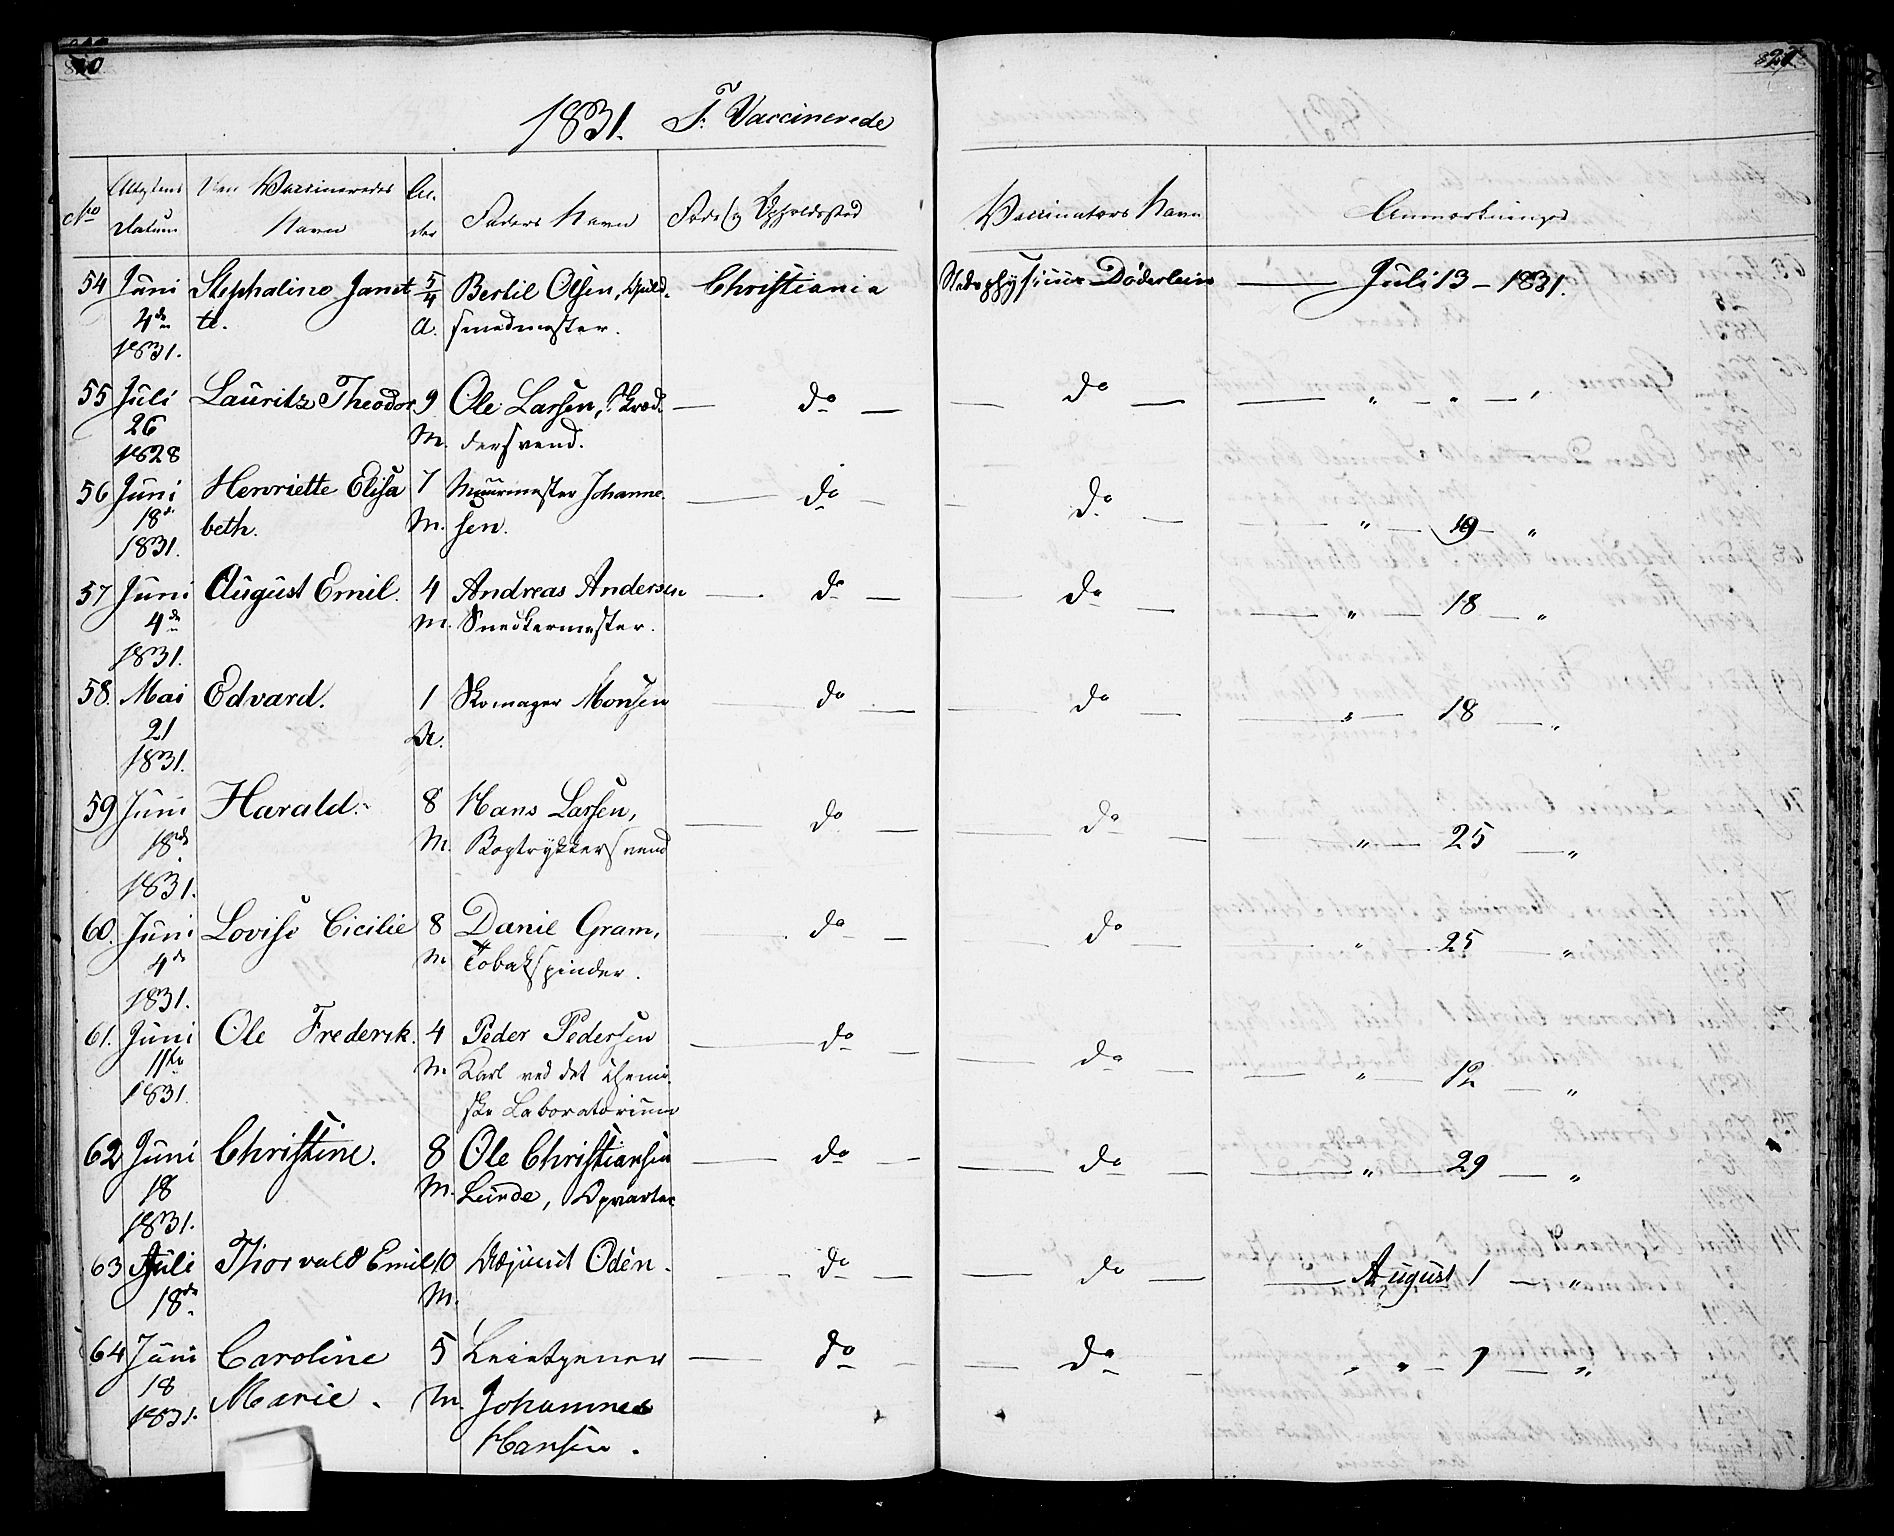 1831. F: Vaccinerede
No Attestens Datum Den Vaccineredes Navn Alder Faders Navn Føde og Opholdssted Vaccinators Navn Anmærkninger
54 Juni Stephaline Janet 5/4 Bertil Olsen, Guld- Christiania Stadsphysicus Døderlein — Juli 13 — 1831.
4de te. A. smedmester.
1831.
55 Juli Lauritz Theodor 9 Ole Larsen, Skræd- — do — — do — — " — " — "
26 M. dersvend.
1828
56 Juni Henriette Elisa 7 Muurmester Johanne- — do — — do — — " — 19 — "
18de beth. M. sen.
1831.
57 Juni August Emil. 4 Andreas Andersen — do — — do — — " — 18 — "
4de M. Snedkermester.
1831.
58. Mai Edvard. 1 Skomager Monsen — do — — do — — " — 18 — "
21 A.
1831.
59 Juni Harald. 8 Hans Larsen, — do — — do — — " — 25 — "
18de M. Bogtrykkersvend
1831.
60. Juni Lovise Cicilie 8 Daniel Gram, — do — — do — — " — 25 — "
4de M. Tobakspinder.
1831.
61. Juni Ole Frederik. 4 Peder Pedersen — do — — do — — " — 12 — "
11te M. Karl ved det chemi-
1831. ske Laboratorium
62 Juni Christine. 8 Ole Christiansen — do — — do — — " — 29 — "
18 M. Lunde, Opvarter
1831.
63 Juli Thorvald Emil 10 Adjunct Odén. — do — — do — — August 1 — "
18de M.
64 Juni Caroline 5 Leietjener — do — — do — " " — 1 — "
18 Marie. M. Johannes
1831. Hansen.